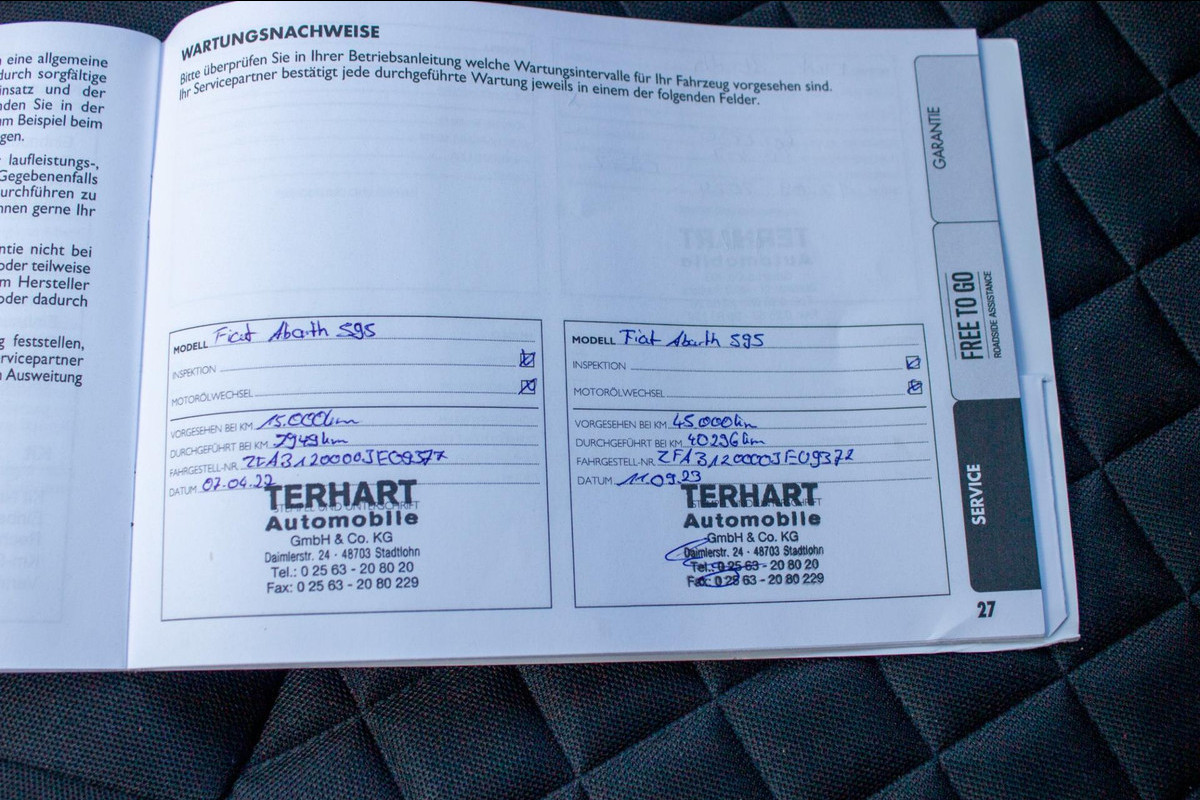 n eine allgemeine
durch sorgfältige
insatz und der
nden Sie in der
um Beispiel beim
gen.
laufleistungs-,
Gegebenenfalls
urchführen zu
nnen gerne Ihr
ntie nicht bei
oder teilweise
m Hersteller
oder dadurch
g feststellen,
ervicepartner
n Ausweitung
WARTUNGSNACHWEISE
Bitte überprüfen Sie in Ihrer Betriebsanleitung welche Wartungsintervalle für Ihr Fahrzeug vorgesehen sind.
Ihr Servicepartner bestätigt jede durchgeführte Wartung jeweils in einem der folgenden Felder.
MODELL Fiat Abarth 595
INSPEKTION
MOTORÖLWECHSEL
VORGESEHEN BEI KM 15.000km
DURCHGEFÜHRT BEI KM 7949km
FAHRGESTELL-NR. ZFA3120000JE09377
DATUM 07.04.22
STEMPEL UND UNTERSCHRIFT
TERHART
Automobile
GmbH & Co. KG
Daimlerstr. 24 - 48703 Stadtlohn
Tel.: 0 25 63 - 20 80 20
Fax: 0 25 63 - 20 80 229
MODELL Fiat Abarth 595
INSPEKTION
MOTORÖLWECHSEL
VORGESEHEN BEI KM 45.000km
DURCHGEFÜHRT BEI KM 40296km
FAHRGESTELL-NR. ZFA3120000JE09372
DATUM 11.09.23
TERHART
Automobile
GmbH & Co. KG
Daimlerstr. 24 - 48703 Stadtlohn
Tel.: 0 25 63 - 20 80 20
Fax: 0 25 63 - 20 80 229
GARANTIE
FREE TO GO
ROADSIDE ASSISTANCE
SERVICE
27